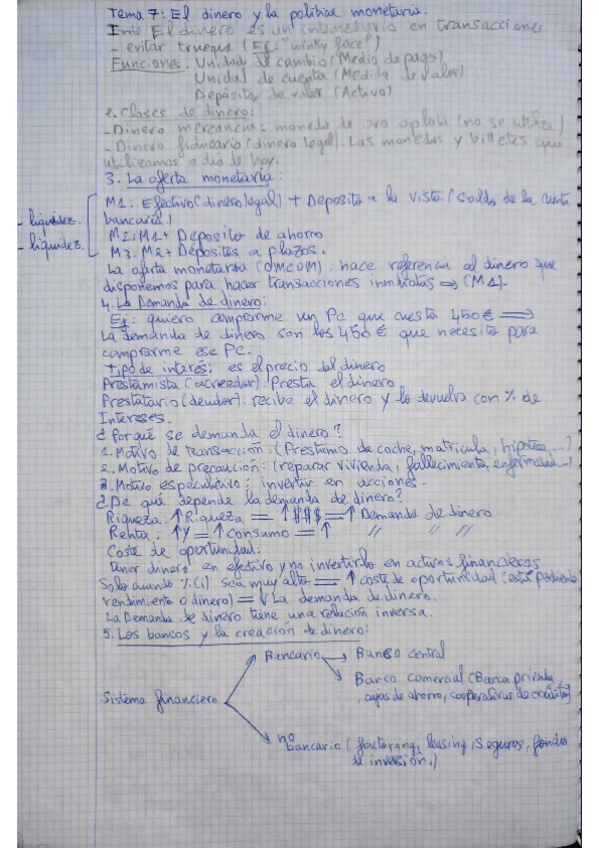 Tema 7: El dinero y la política monetaria.
El dinero es un intermediario en transacciones
- evitar trueque (Ej: "winky face")
Funciones. Unidad de cambio (Medio de pago)
Unidad de cuenta (Medida de valor)
Depósito de valor (Activo)
2. Clases de dinero:
- Dinero mercancía: moneda de oro o plata (no se utiliza)
- Dinero fiduciario (dinero legal). Las monedas y billetes que
utilizamos a día de hoy.
3. La oferta monetaria:
M1: Efectivo (dinero legal) + Deposito a la vista (saldo de la cuenta
- liquidez. bancaria)
M2: M1 + Deposito de ahorro
- liquidez. M3: M2 + Depósitos a plazos.
La oferta monetaria (OM ó OM): hace referencia al dinero que
disponemos para hacer transacciones inmediatas ⇒ (M1).
4. La Demanda de dinero:
Ej: quiero comprarme un Pc que cuesta 450€ ⇒
La demanda de dinero son los 450€ que necesito para
comprarme ese PC.
Tipo de interés: es el precio del dinero
Prestamista (acreedor). Presta el dinero
Prestatario (deudor). recibe el dinero y lo devuelve con % de
Intereses.
¿Por qué se demanda el dinero?
1. Motivo de transacción: (Prestamo de coche, matricula, hipoteca...)
2. Motivo de precaución: (reparar vivienda, fallecimiento, enfermedad...)
3. Motivo especulativo: invertir en acciones.
¿De qué depende la demanda de dinero?
Riqueza: ↑Riqueza = ↑$$$ = ↑ Demanda de dinero
Renta: ↑Y = ↑consumo = ↑ // // //
Coste de oportunidad:
tener dinero en efectivo y no invertirlo en activos financieros
Solo cuando %(i) sea muy alto = ↑ coste de oportunidad (está perdiendo
rendimiento o dinero) = ↓ La demanda de dinero.
La Demanda de dinero tiene una relación inversa.
5. Los bancos y la creación de dinero:
Bancario → Banco central
Banco comercial (Banca privada
, cajas de ahorro, cooperativas de crédito)
Sistema financiero
no bancario (factoring, leasing, seguros, fondos
de inversión.)